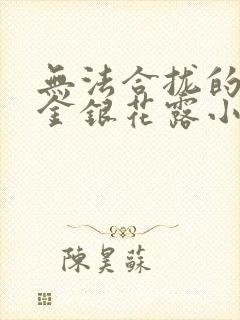 無法合拢的
金銀花露小
陳昊蘇